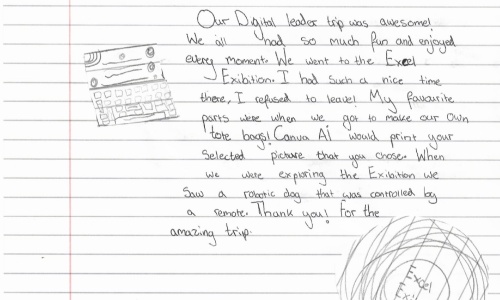 Our Digital leader trip was awesome!
We all had so much fun and enjoyed
every moment. We went to the Excel
Exibition. I had such a nice time
there, I refused to leave! My favourite
parts were when we got to make our own
tote bags! Canva Ai would print your
selected picture that you chose. When
we were exploring the Exibition we
saw a robotic dog that was controlled by
a remote. Thank you! For the
amazing trip.
Excel